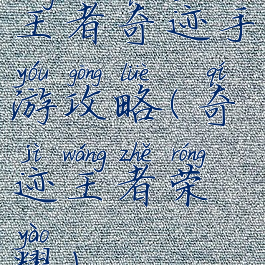 王者奇迹手
yóu gōng lüè qí
游攻略(奇
jì wáng zhě róng
迹王者荣
yào
耀)